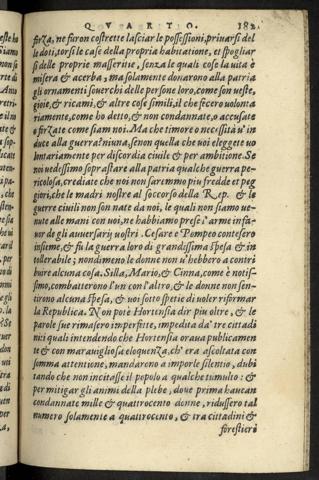 QVARTO. 182
firza, ne furon costrette lasciar le possessioni, priuarsi del
le doti, torsi le case della propria habitatione, et spogliar
si delle proprie masserite, senza le quali cose la uita è
misera & acerba; ma solamente donarono alla patria
gli ornamenti souerchi delle persone loro, come son ueste,
gioie, & ricami, & altre cose simili, il che fecero uolonta
riamente, come ho detto, & non condannate, o accusate
o firzate come siam noi. Ma che timore o necessità u'in
duce alla guerra? niuna, se non quella che uoi eleggete uo
lontariamente per discordia ciuile & per ambitione. Se
noi uedessimo soprastare alla patria qualche guerra pe-
ricolosa, crediate che noi non saremmo piu fredde et peg
giori, che le madri nostre al soccorso della Rep. & le
guerre ciuili non son nate da noi, le quali non siamo ue-
nute alle mani con noi, ne habbiamo prese l'arme in fa-
uor de gli auuersarij uostri. Cesare e Pompeo contesero
insieme, & fu la guerra loro di grandissima spesa & in
tollerabile; nondimeno le donne non u'hebbero a contri
buire alcuna cosa. Silla, Mario, & Cinna, come è notis-
simo, combatterono l'un con l'altro, & le donne non sen-
tirono alcuna spesa, & uoi sotto spetie di uoler riformar
la Republica. Non potè Hortensia dir piu oltre, & le
parole sue rimasero imperfitte, impedita da' tre cittadi
ni i quali intendendo che Hortensia oraua publicamen
te & con marauigliosa eloquenza, ch'era ascoltata con
somma attentione, mandarono a imporle silentio, dubi
tando che non incitasse il popolo a qualche tumulto: &
per mitigar gli animi della plebe, doue prima haueano
condannate mille & quattrocento donne, ridussero tal
numero solamente a quattrocento, & tra cittadini &
forestieri